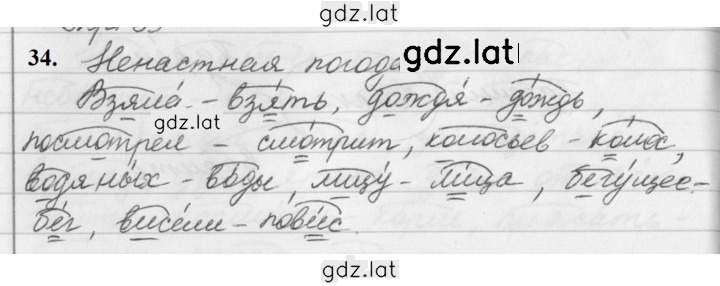 gdz.lat
34. Ненастная погода
gdz.lat
Взяла́ - взя́ть, дождя́ - до́ждь,
gdz.lat
посмотрел - смо́трит, колосьев - ко́лос,
водяны́х - во́ды, лицу́ - ли́ца, бегу́щее -
бе́г, висе́ли - пови́с.
gdz.lat